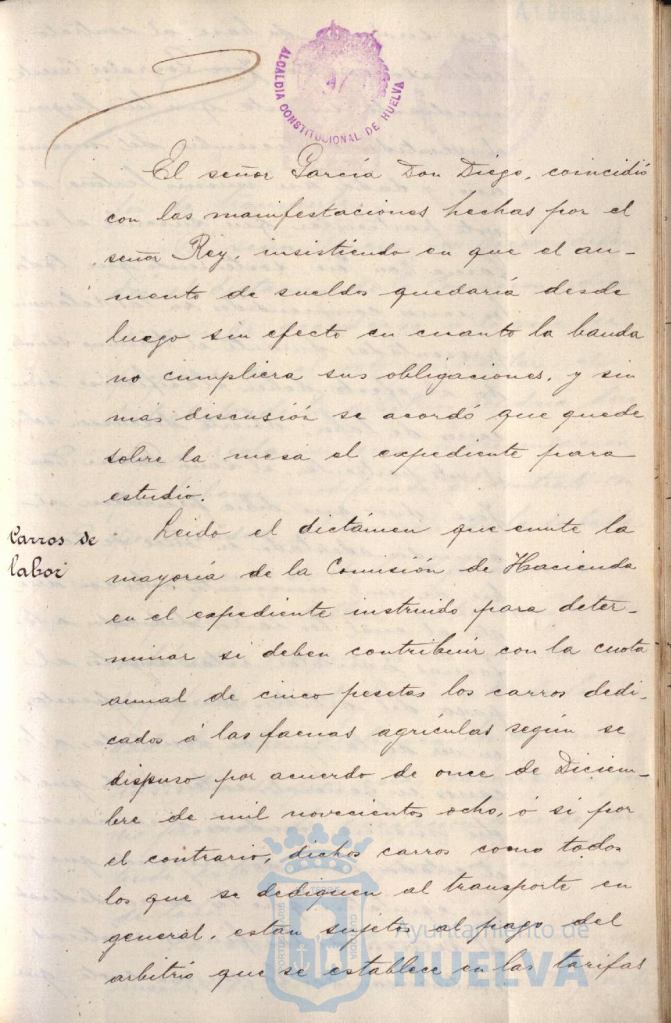 ALCALDIA CONSTITUCIONAL DE HUELVA
El señor García Don Diego, coincidió
con las manifestaciones hechas por el
señor Rey, insistiendo en que el au-
mento de sueldos quedaría desde
luego sin efecto en cuanto la banda
no cumpliera sus obligaciones, y sin
más discusión se acordó que quede
sobre la mesa el expediente para
estudio.
Carros de
labor
Leido el dictámen que emite la
mayoría de la Comisión de Hacienda
en el expediente instruido para deter-
minar si deben contribuir con la cuota
anual de cinco pesetas los carros dedi-
cados á las faenas agrículas según se
dispuso por acuerdo de once de Diciem-
bre de mil novecientos ocho, ó si por
el contrario, dichos carros como todos
los que se dediquen al transporte en
general, están sujetos al pago del
arbitrio que se establece en las tarifas
Ayuntamiento de
HUELVA